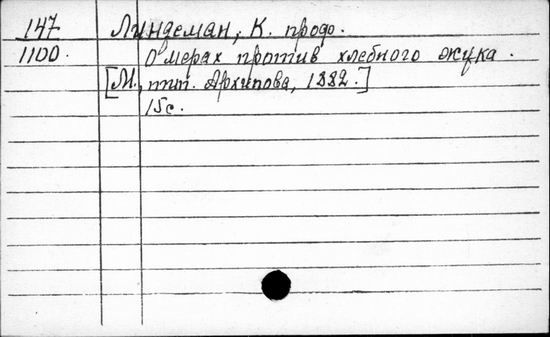 147 Линдеман, К. продо.
1100. О мерах против хлебного жука.
[М., тип. Архипова, 1882.]
15с.